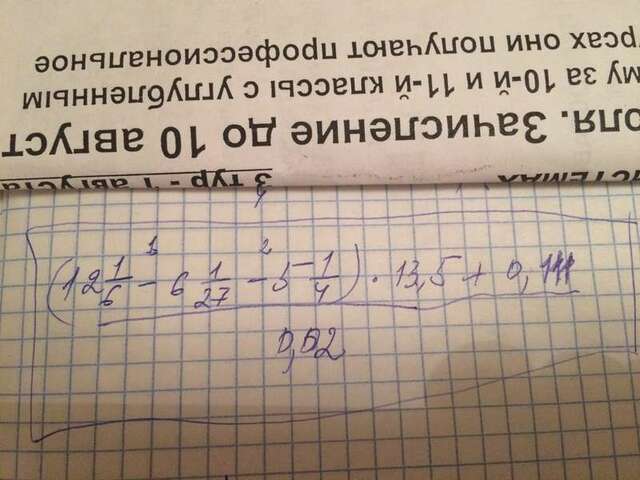 ИСТЕМАХ 3 тур - 1 августа
оля. Зачисление до 10 август
му за 10-й и 11-й классы с углубленным
рсах они получают профессиональное
1 2
(12 1/6 - 6 1/27 - 5 1/4) · 13,5 + 0,111
0,02